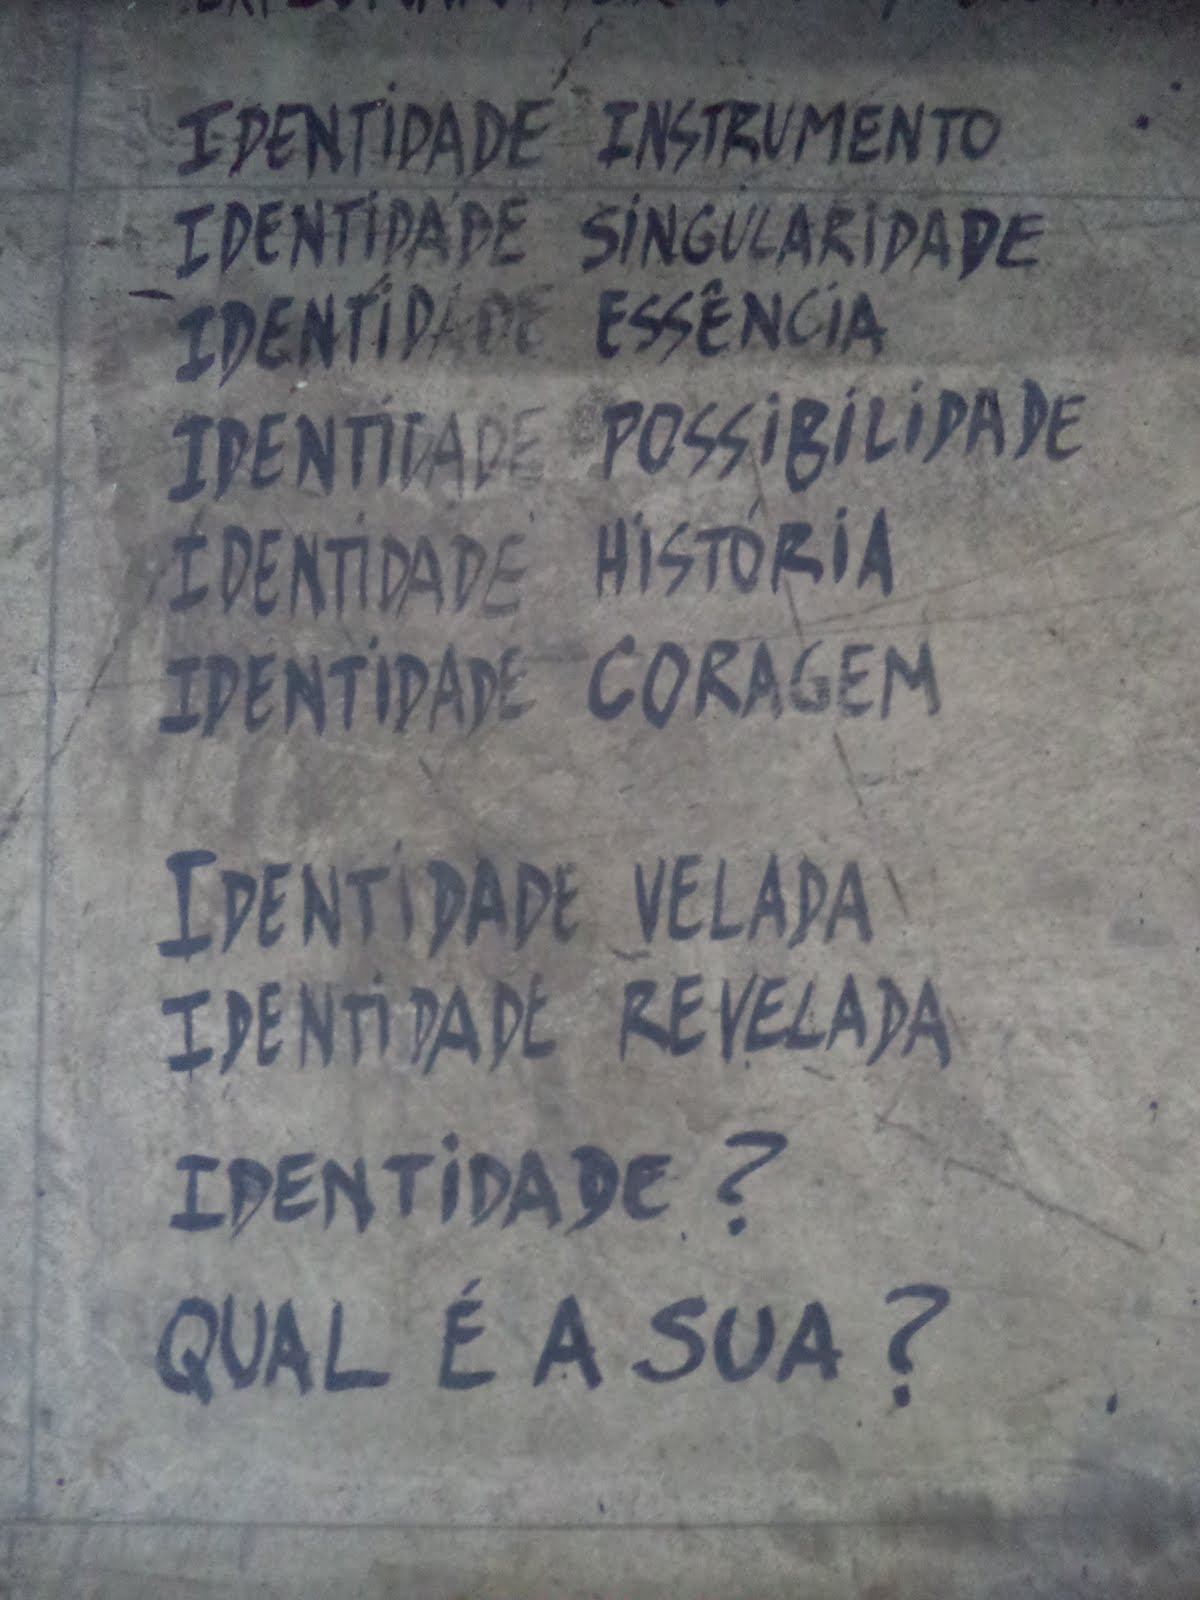 IDENTIDADE INSTRUMENTO
IDENTIDADE SINGULARIDADE
IDENTIDADE ESSÊNCIA
IDENTIDADE POSSIBILIDADE
IDENTIDADE HISTÓRIA
IDENTIDADE CORAGEM
IDENTIDADE VELADA
IDENTIDADE REVELADA
IDENTIDADE ?
QUAL É A SUA ?